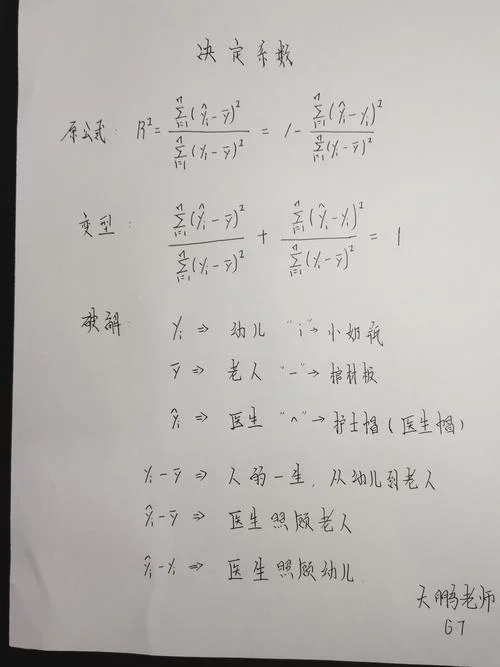 决定系数
原公式: R² = \frac{\sum_{i=1}^{n}(ŷi-ȳ)²}{\sum_{i=1}^{n}(yi-ȳ)²} = 1- \frac{\sum_{i=1}^{n}(ŷi-yi)²}{\sum_{i=1}^{n}(yi-ȳ)²}
变型: \frac{\sum_{i=1}^{n}(ŷi-ȳ)²}{\sum_{i=1}^{n}(yi-ȳ)²} + \frac{\sum_{i=1}^{n}(ŷi-yi)²}{\sum_{i=1}^{n}(yi-ȳ)²} = 1
破解: yi ⇒ 幼儿 "i"→小奶瓶
ȳ ⇒ 老人 "-"→棺材板
ŷi ⇒ 医生 "^"→护士帽(医生帽)
yi-ȳ ⇒ 人的一生,从幼儿到老人
ŷi-ȳ ⇒ 医生照顾老人
ŷi-yi ⇒ 医生照顾幼儿.
天鹏老师
G7